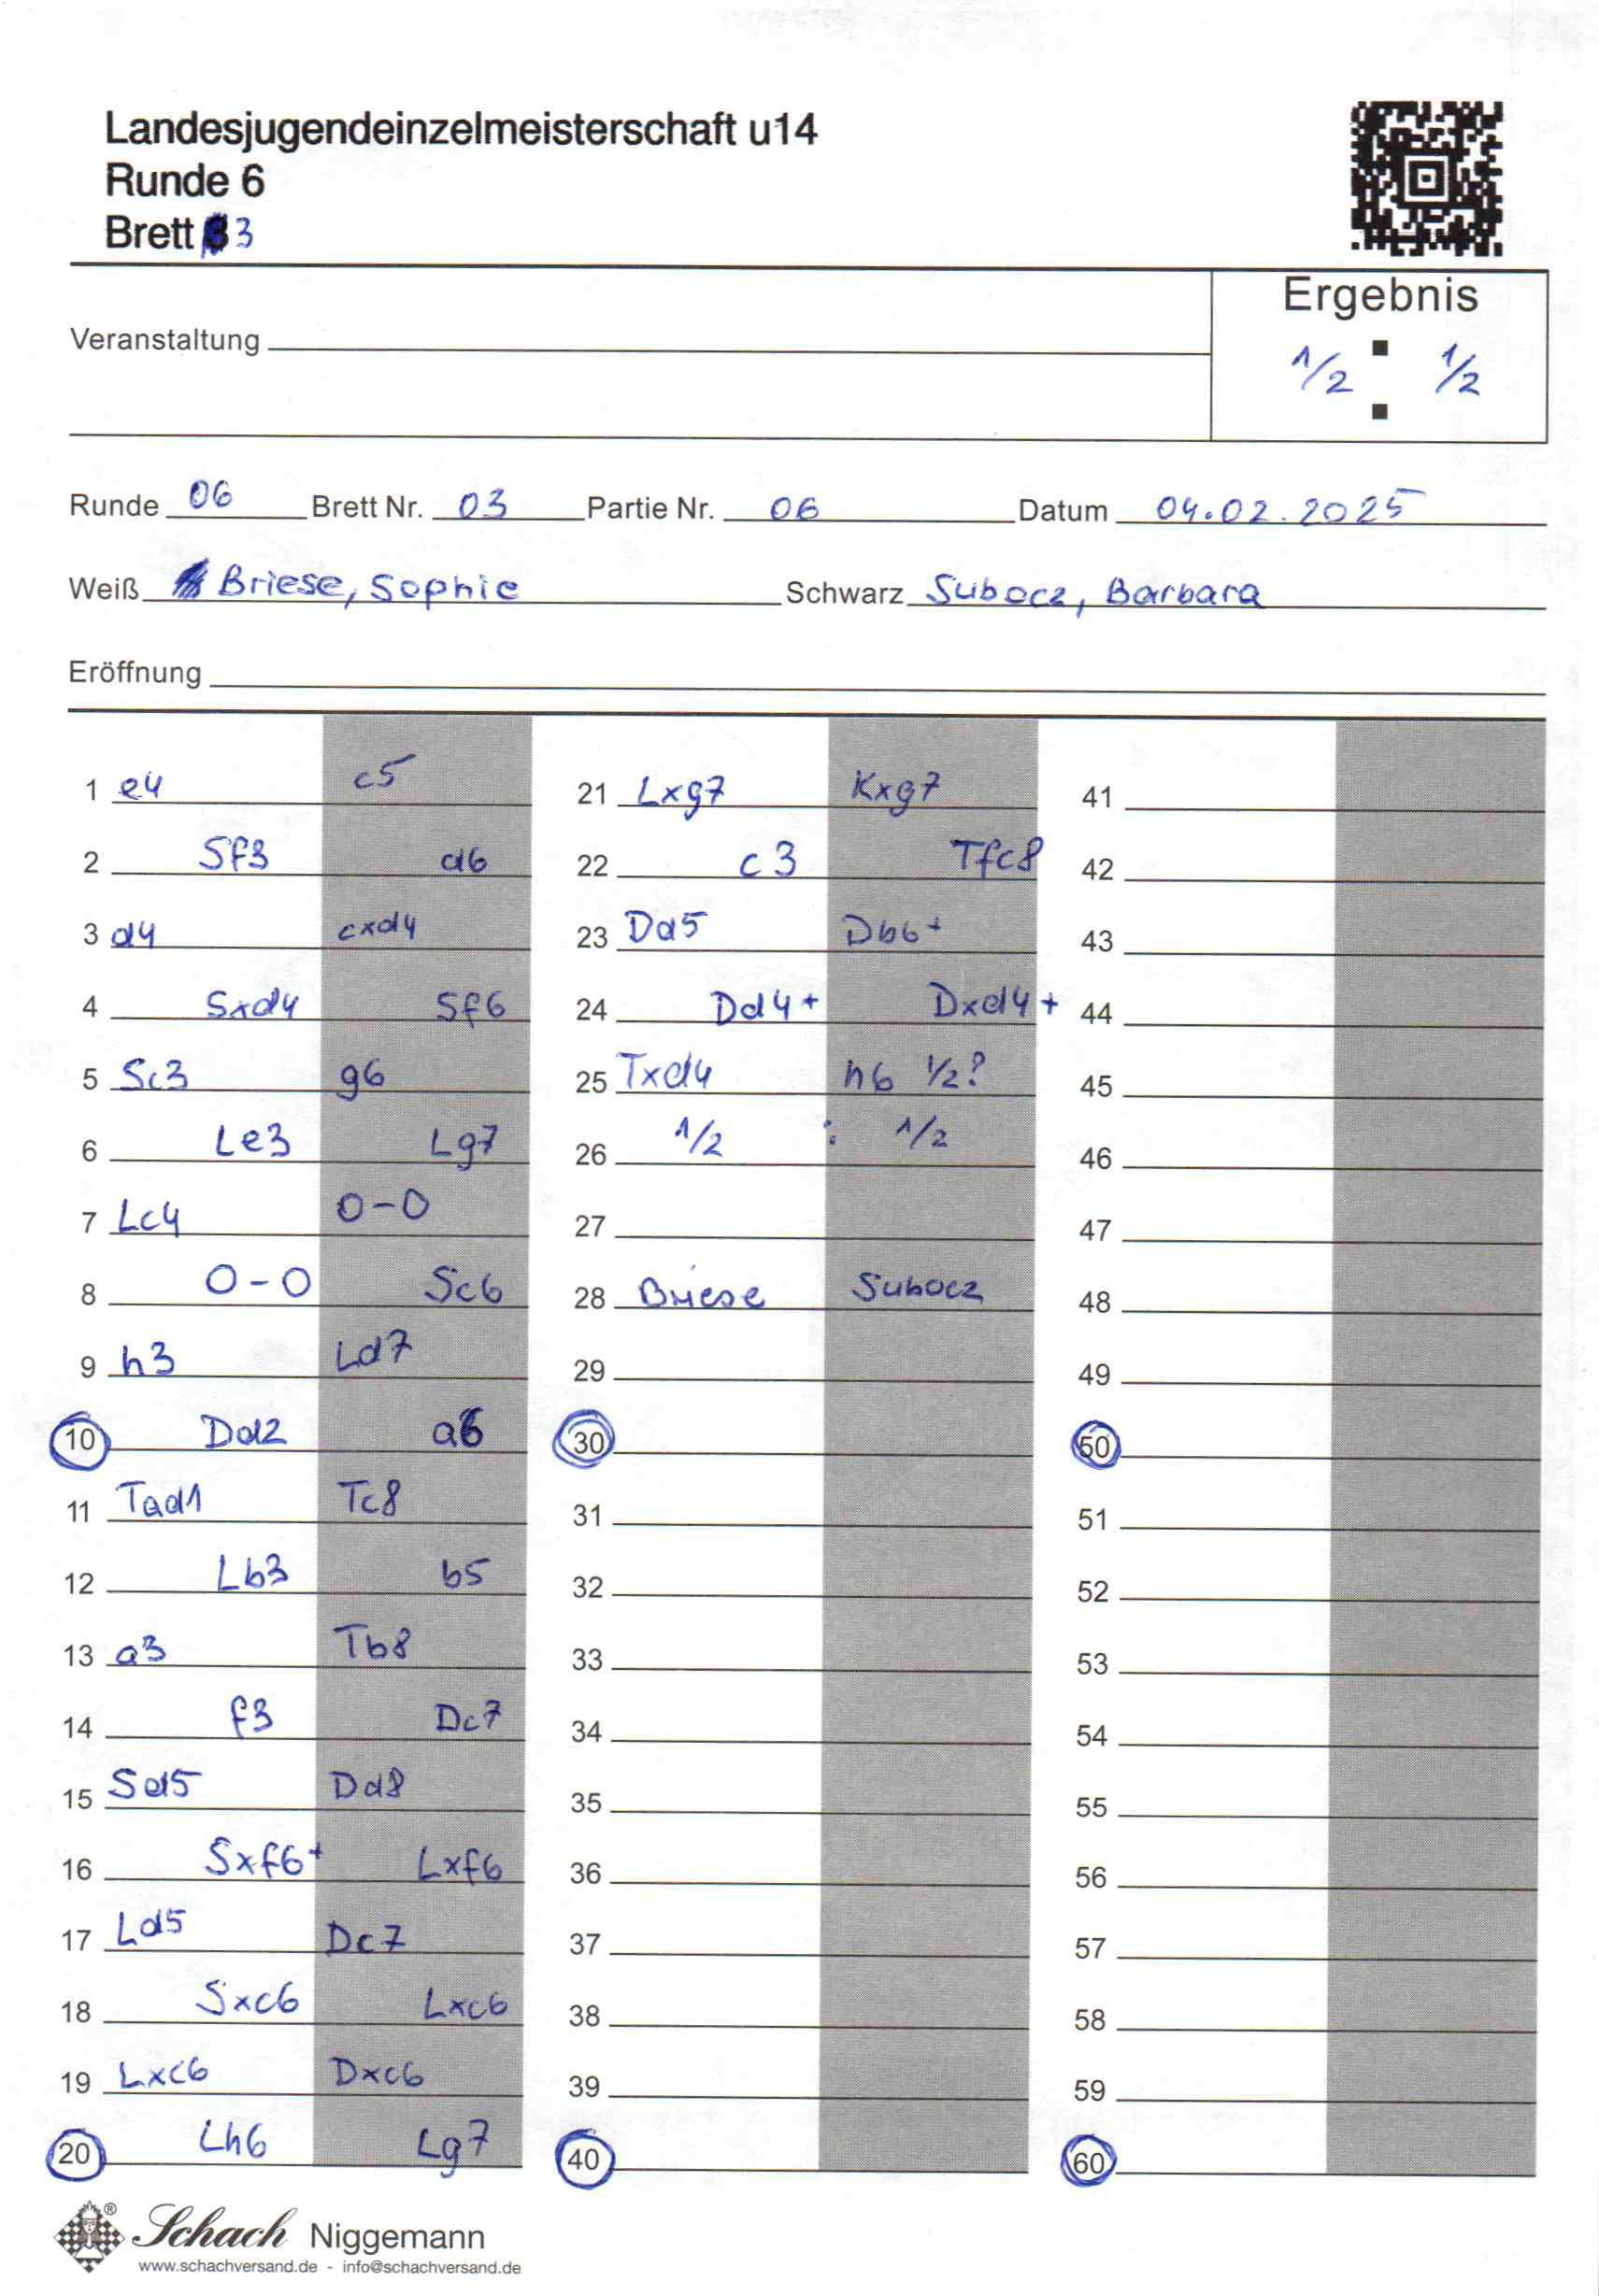 Landesjugendeinzelmeisterschaft u14
Runde 6
Brett 3
Ergebnis
Veranstaltung
1/2 : 1/2
Runde 06 Brett Nr. 03 Partie Nr. 06 Datum 04.02.2025
Weiß Briese, Sophie Schwarz Subocz, Barbara
Eröffnung
1 e4 c5
2 Sf3 d6
3 d4 cxd4
4 Sxd4 Sf6
5 Sc3 g6
6 Le3 Lg7
7 Lc4 0-0
8 0-0 Sc6
9 h3 Ld7
10 Dd2 a6
11 Tad1 Tc8
12 Lb3 b5
13 a3 Tb8
14 f3 Dc7
15 Sd5 Dd8
16 Sxf6+ Lxf6
17 Ld5 Dc7
18 Sxc6 Lxc6
19 Lxc6 Dxc6
20 Lh6 Lg7
21 Lxg7 Kxg7
22 c3 Tfc8
23 Dd5 Db6+
24 Dd4+ Dxd4+
25 Txd4 h6 1/2?
26 1/2 : 1/2
27
28 Briese Subocz
29
30
31
32
33
34
35
36
37
38
39
40
41
42
43
44
45
46
47
48
49
50
51
52
53
54
55
56
57
58
59
60
Schach Niggemann
www.schachversand.de - info@schachversand.de